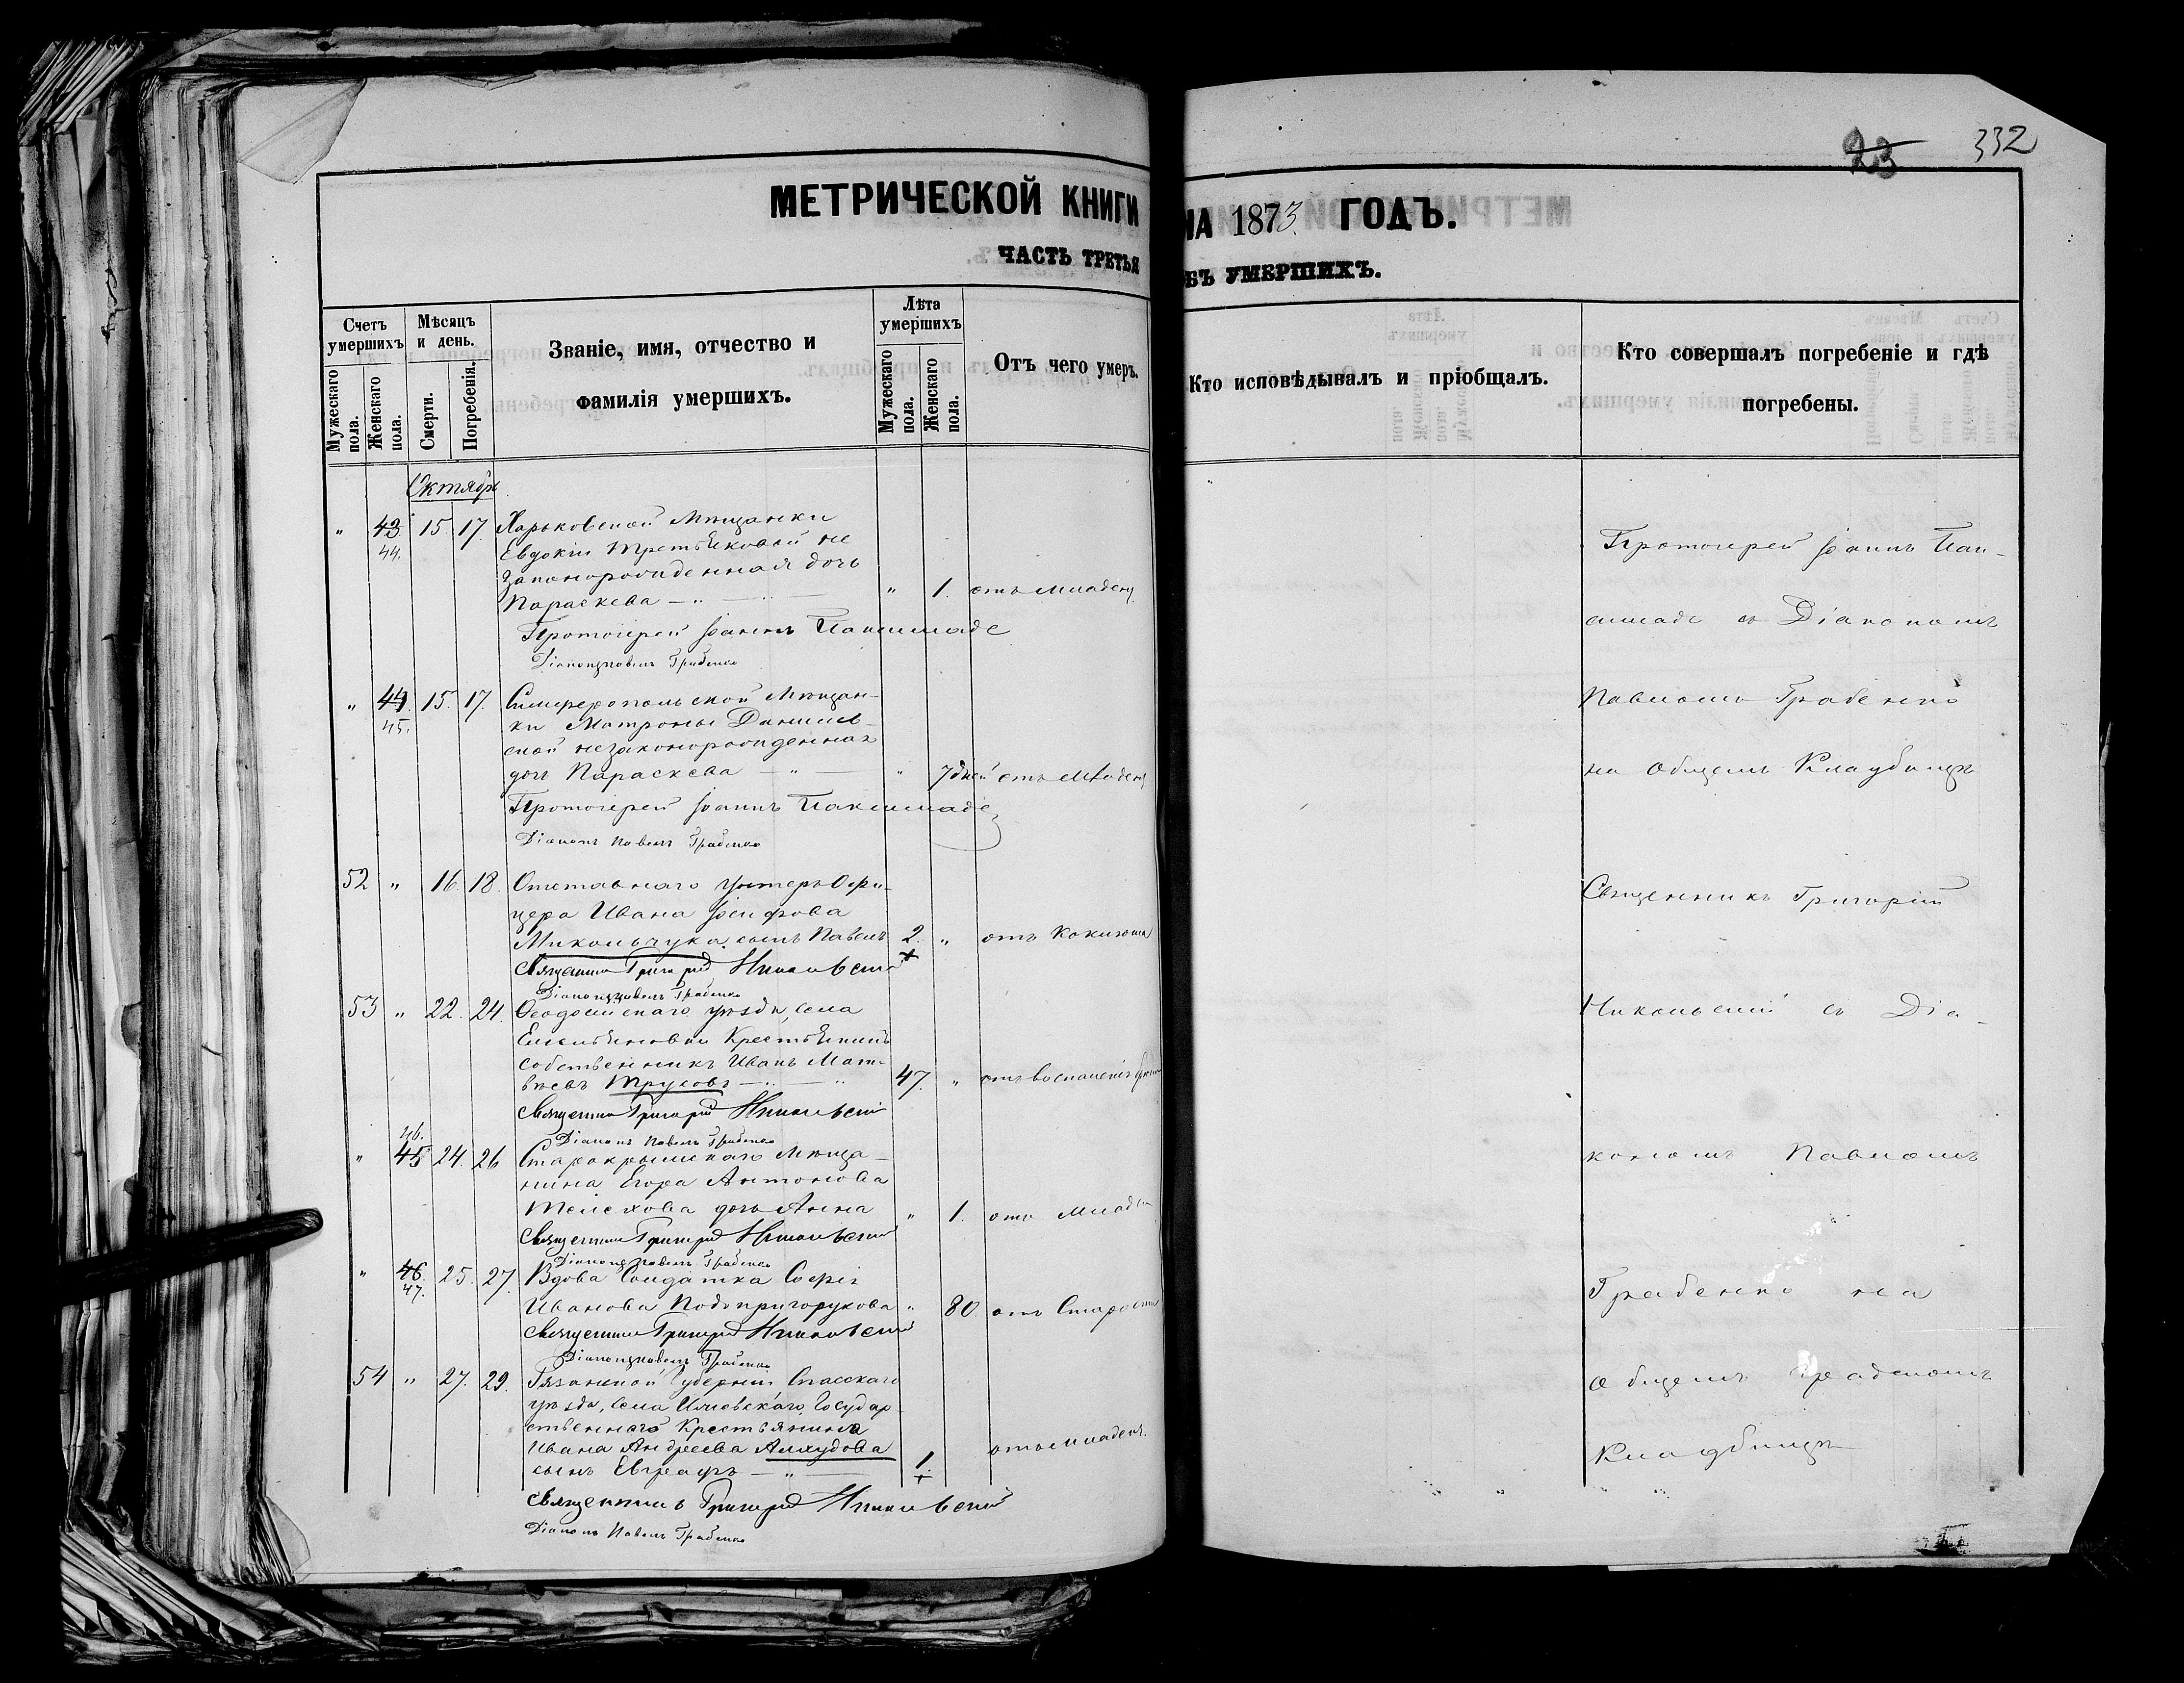 23 332
МЕТРИЧЕСКОЙ КНИГИ
НА 1873 ГОДЪ.
ЧАСТЬ ТРЕТЬЯ
ОБЪ УМЕРШИХЪ.
Счетъ умершихъ
Мужескаго пола.
Женскаго пола.
Мѣсяцъ и день.
Смерти.
Погребенія.
Званіе, имя, отчество и
фамилія умершихъ.
Лѣта умершихъ
Мужескаго пола.
Женскаго пола.
Отъ чего умеръ.
Кто исповѣдывалъ и пріобщалъ.
Кто совершалъ погребеніе и гдѣ
погребены.
Октябрь
" 43. 15. 17. Харьковской Мѣщанки
44. Евдокіи Третьяковой не
законорожденная дочь
Параскева — " — " — " 1. отъ младен.
Протоіерей Іоаннъ Паксимаде
Діаконъ Павелъ Грабенко
" 44. 15. 17. Симферопольской Мѣщан-
45. ки Матроны Данилев-
ской незаконорожденная
дочь Параскева — " — " 7 дней отъ младен.
Протоіерей Іоаннъ Паксимаде
Діаконъ Павелъ Грабенко
52 " 16. 18. Отставнаго Унтеръ Офи-
цера Ивана Іосифова
Микольчука сынъ Павелъ 2. " отъ Коклюша
Священникъ Григорій Никольскій
Діаконъ Павелъ Грабенко
53 " 22. 24. Ѳеодосійскаго уѣзда, села
Емельяновки Крестьянинъ
собственникъ Иванъ Мат-
вѣевъ Трусовъ — " — " 47. " отъ воспаленія
Священникъ Григорій Никольскій
46. Діаконъ Павелъ Грабенко
" 45 24. 26 Старокрымскаго Мѣща-
нина Егора Антонова
дочь Анна " 1. отъ Младен
Священникъ Григорій Никольскій
Діаконъ Павелъ Грабенко
" 46. 25. 27. Вдова Солдатка Софія
47. Иванова Подопригорукова " 80. отъ Старости
Священникъ Григорій Никольскій
Діаконъ Павелъ Грабенко
54 " 27. 29. Рязанской Губерніи Спасскаго
уѣзда, села Государ-
ственнаго Крестьянина
Ивана Андреева
сынъ Евграфъ — " — 1. отъ младен.
Священникъ Григорій Никольскій
Діаконъ Павелъ Грабенко
Протоіерей Іоаннъ Пак-
симаде съ Діакономъ
Павломъ Грабенко
на общемъ Кладбищѣ
Священникъ Григорій
Никольскій съ Діа-
кономъ Павломъ
Грабенко на
общемъ градскомъ
Кладбищѣ